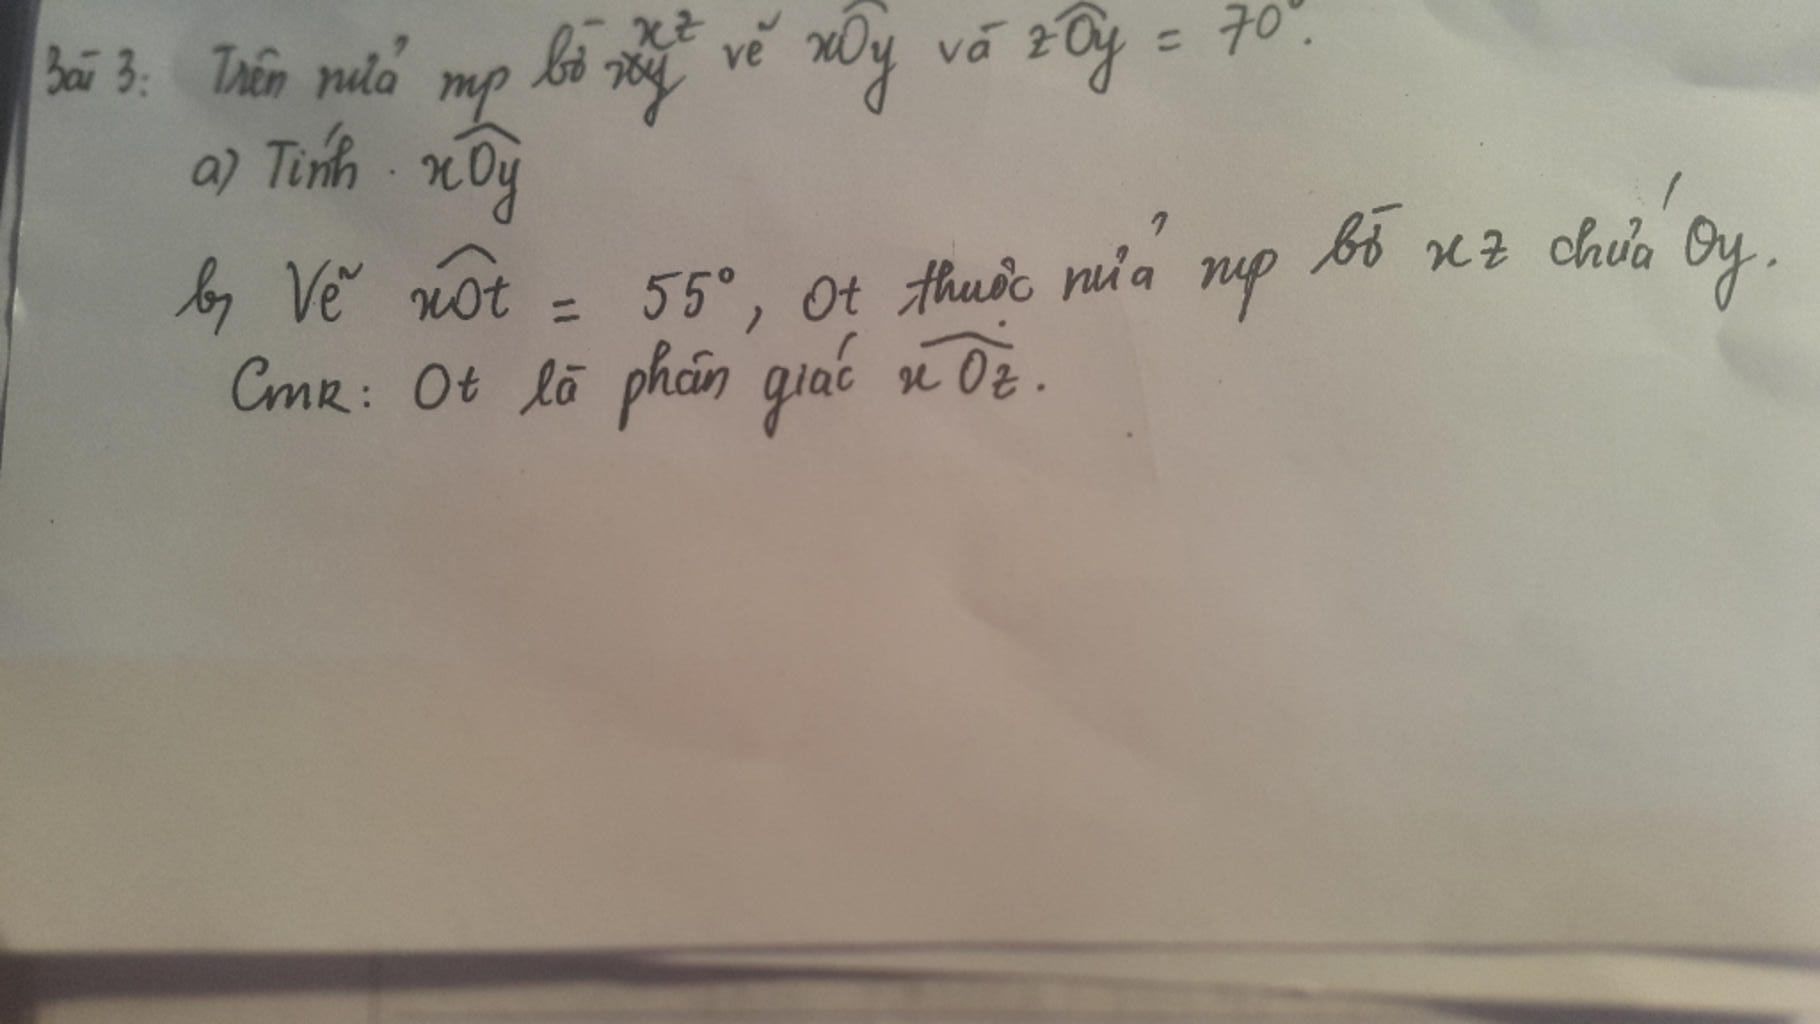 Bài 3: Trên nửa mp bờ xz vẽ xOy và zOy = 70°.
a) Tính xOy
b, Vẽ xOt = 55°, Ot thuộc nửa mp bờ xz chứa Oy.
CmR: Ot là phân giác xOz.